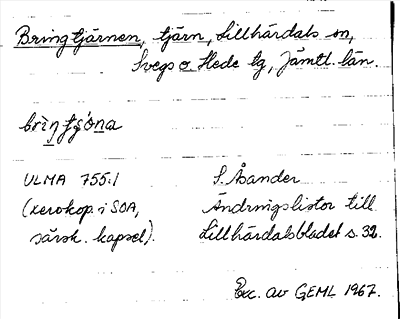 Bringtjärnen, tjärn, Lillhärdals sn,
Svegs o Hede tg, Jämtl. län.
brìŋtjǫ̈na
ULMA 755:1
(xerokop. i SOA,
särsk. kapsel).
S. Åsander
Ändringslistor till
Lillhärdalsbladet s. 32.
Exc. av GEML 1967.